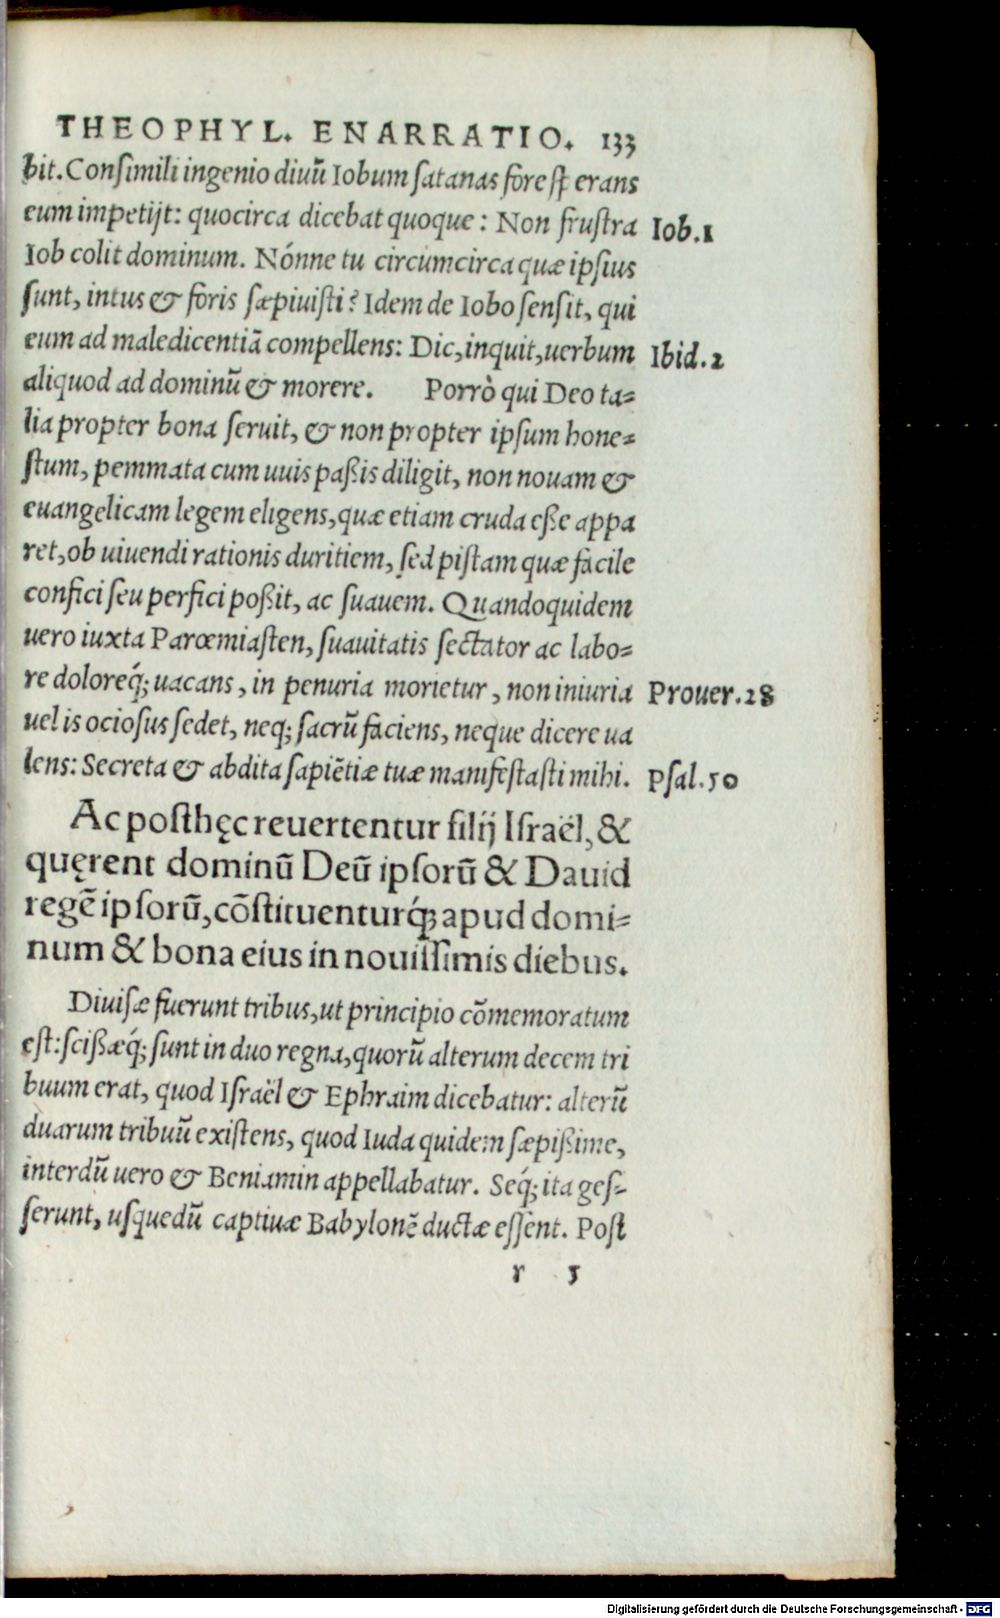 THEOPHYL. ENARRATIO. 133
bit. Consimili ingenio diuū Iobum satanas fore sꝑerans
eum impetijt: quocirca dicebat quoque: Non frustra Iob.1
Iob colit dominum. Nónne tu circumcirca quæ ipsius
sunt, intus & foris sæpiuisti? Idem de Iobo sensit, qui
eum ad maledicentiā compellens: Dic, inquit, uerbum Ibid.2
aliquod ad dominū & morere. Porrò qui Deo ta=
lia propter bona seruit, & non propter ipsum hone=
stum, pemmata cum uuis paßis diligit, non nouam &
euangelicam legem eligens, quæ etiam cruda eße appa
ret, ob uiuendi rationis duritiem, sed pistam quæ facile
confici seu perfici poßit, ac suauem. Quandoquidem
uero iuxta Parœmiasten, suauitatis sectator ac labo=
re doloreq́; uacans, in penuria morietur, non iniuria Prouer.28
uel is ociosus sedet, neq; sacrū faciens, neque dicere ua
lens: Secreta & abdita sapiētiæ tuæ manifestasti mihi. Psal.50
Ac posthęc reuertentur filij Israël, &
quęrent dominū Deū ipsorū & Dauid
regē ipsorū, cōstituenturq́; apud domi=
num & bona eius in nouissimis diebus.
Diuisæ fuerunt tribus, ut principio cōmemoratum
est: scißæq́; sunt in duo regna, quorū alterum decem tri
buum erat, quod Israël & Ephraim dicebatur: alterū
duarum tribuū existens, quod Iuda quidem sæpißime,
interdū uero & Beniamin appellabatur. Seq́; ita ges=
serunt, usquedū captiuæ Babylonē ductæ essent. Post
r 5
Digitalisierung gefördert durch die Deutsche Forschungsgemeinschaft - DFG